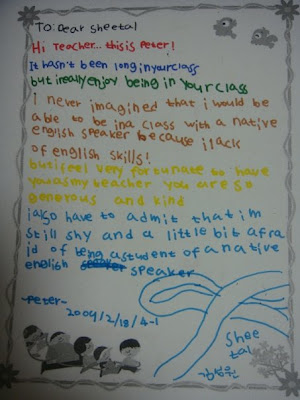 TO: Dear sheetal
Hi Teacher... this is peter!
It hasn't been long in your class
but i really enjoy being in your class
i never imagined that i would be
able to be in a class with a native
english speaker because i lack
of english skills!
but i feel very fortunate to have
you as my teacher you are so
generous and kind
i also have to admit that im
still shy and a little bit afra
id of being a student of a native
english speaker
-peter-
2009/2/18/4-1
shee
tal
김성원